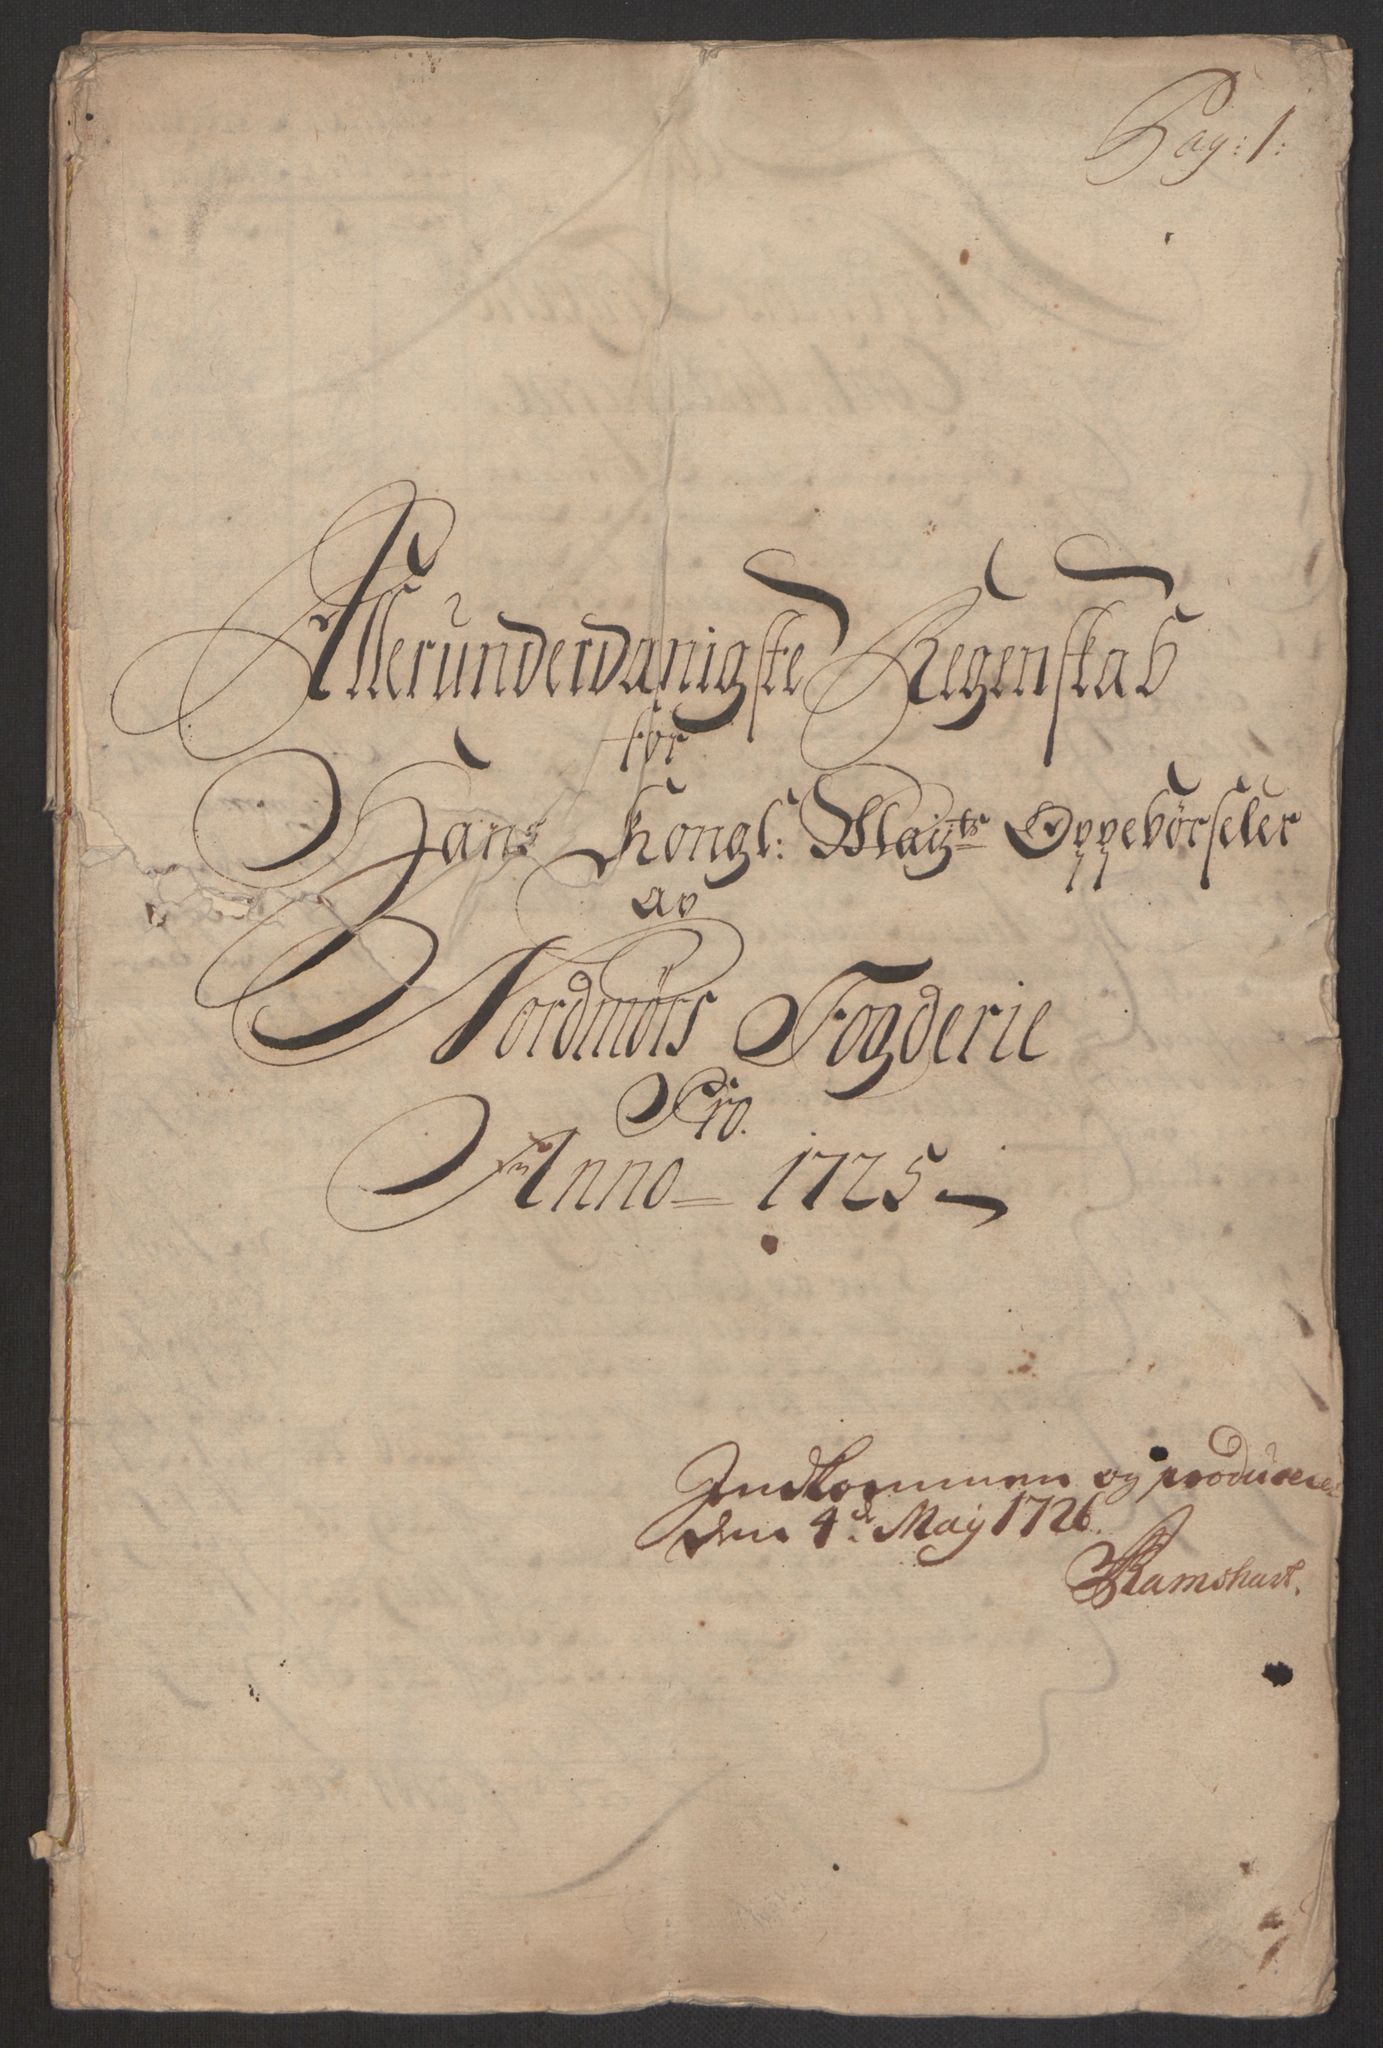 Pag: 1:
Allerunderdanigste Regenskab
for
Hans Kongl: Mayts Oppebörseler
av
Nordmörs Fogderie
Pro.
Anno 1725
Indkommen og produceret
den 4de May 1726.
Ramshart.